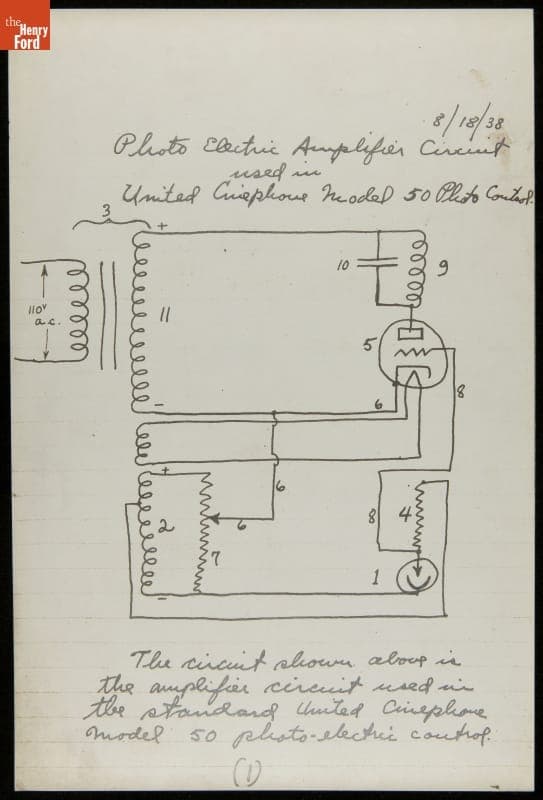 the
Henry
Ford
8/18/38
Photo Electric Amplifier Circuit
used in
United Cinephone Model 50 Photo Control.
3
+
10
9
110v
a.c.
11
5
-
6
8
+
6
2
6
8
4
7
1
-
The circuit shown above is
the amplifier circuit used in
the standard United Cinephone
Model 50 photo-electric control.
(1)